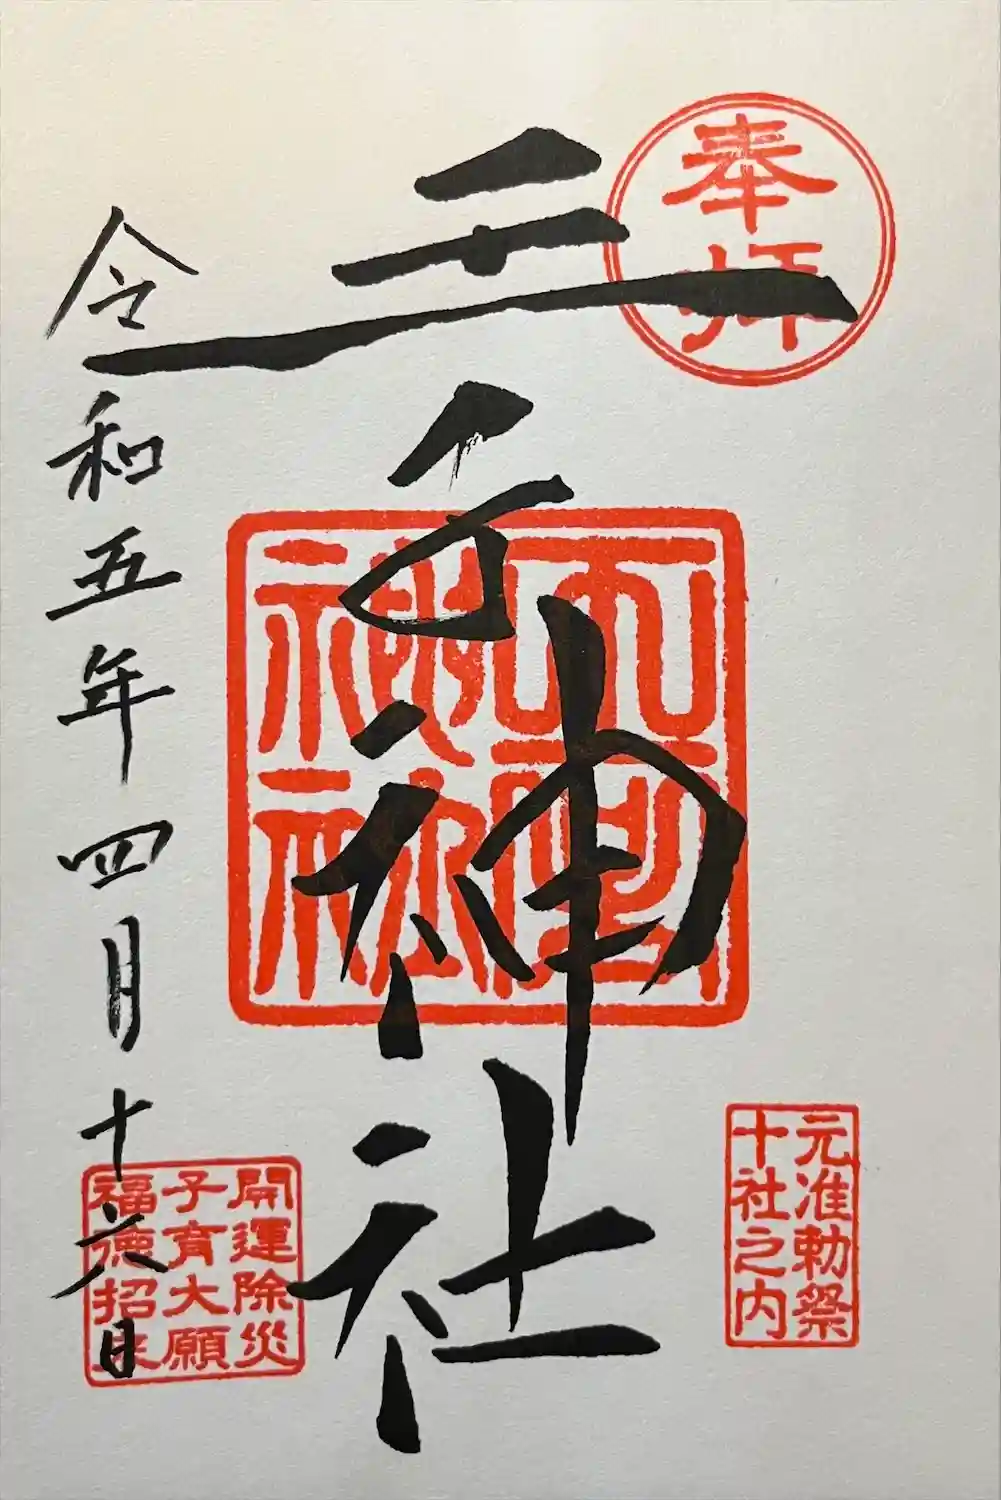 奉拝
元准勅祭
十社之内
王子神社
開運除災
子育大願
福徳招来
令和五年四月十六日